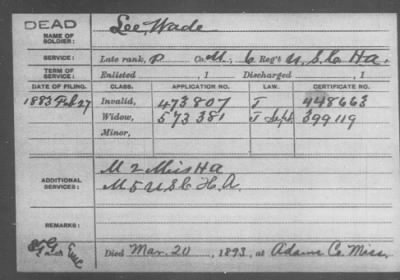 DEAD
NAME OF SOLDIER: Lee Wade
SERVICE: Late rank, P Co. M, 6 Reg't U.S.C. H.A.
TERM OF SERVICE: Enlisted , 1 Discharged , 1
DATE OF FILING. CLASS. APPLICATION NO. LAW. CERTIFICATE NO.
1883 Feb 27 Invalid, 473807 J 448663
Widow, 573381 J 399119
Minor,
ADDITIONAL SERVICES: M 2 Miss H A
M 5 U S C H. A.
REMARKS:
Died Mar. 20, 1893, at Adams Co. Miss.